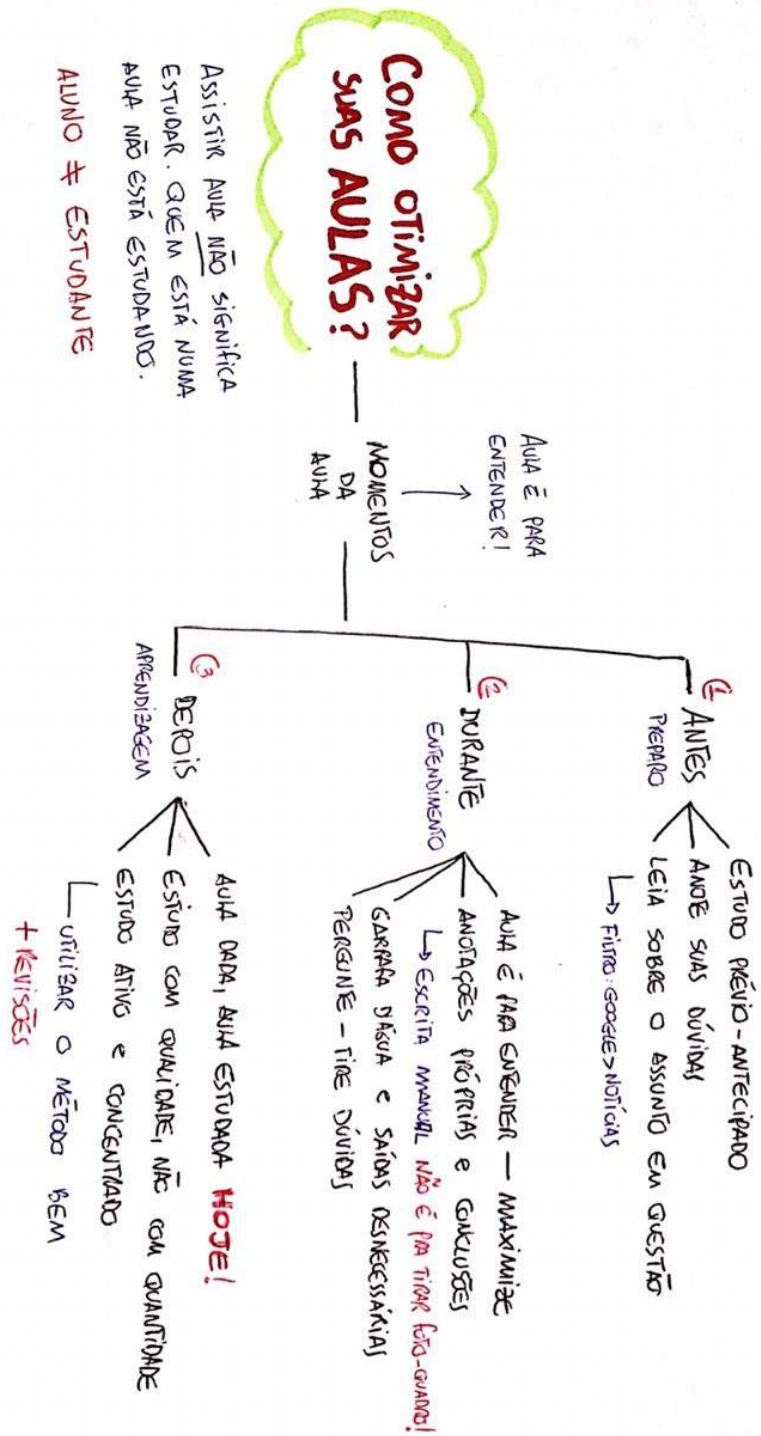 COMO OTIMIZAR
SUAS AULAS?
ASSISTIR AULA NÃO SIGNIFICA
ESTUDAR. QUEM ESTÁ NUMA
AULA NÃO ESTÁ ESTUDANDO.
ALUNO ≠ ESTUDANTE
AULA É PARA
ENTENDER!
MOMENTOS
DA
AULA
1 ANTES
PREPARO
ESTUDO PRÉVIO - ANTECIPADO
ANOTE SUAS DÚVIDAS
LEIA SOBRE O ASSUNTO EM QUESTÃO
↳ FILTRO: GOOGLE > NOTÍCIAS
2 DURANTE
ENTENDIMENTO
AULA É PARA ENTENDER — MAXIMIZE
ANOTAÇÕES PRÓPRIAS e CONCLUSÕES
↳ ESCRITA MANUAL NÃO É PRA TIRAR FOTO-QUADRO!
GARRAFA D'ÁGUA e SAÍDAS DESNECESSÁRIAS
PERGUNTE - TIRE DÚVIDAS
3 DEPOIS
APRENDIZAGEM
AULA DADA, AULA ESTUDADA HOJE!
ESTUDO COM QUALIDADE, NÃO COM QUANTIDADE
ESTUDO ATIVO e CONCENTRADO
UTILIZAR O MÉTODO BEM
+ REVISÕES